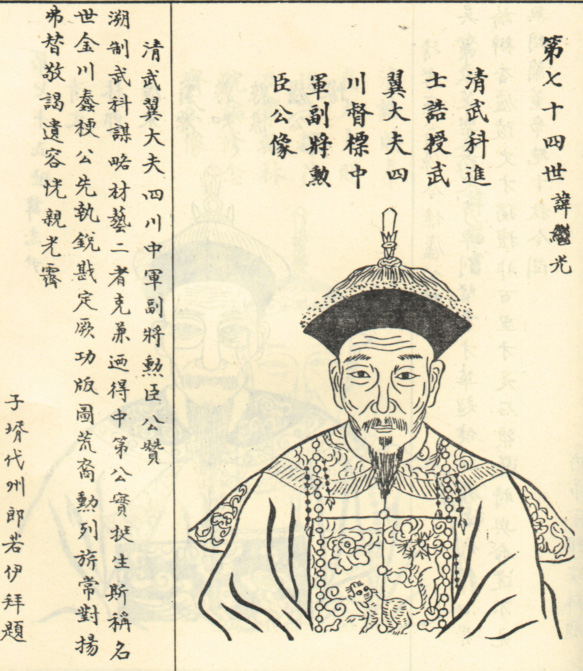 第七十四世諱繼光
清武科進
士誥授武
翼大夫四
川督標中
軍副將勲
臣公像
清武翼大夫四川中軍副將勲臣公贊
溯制武科謀略材藝二者克兼迺得中第公實挺生斯稱名
世金川蠢梗公先執銳戡定厥功版圖荒裔勲列旂常對揚
弗替敬謁遺容恍親光霽
子壻代州郎若伊拜題